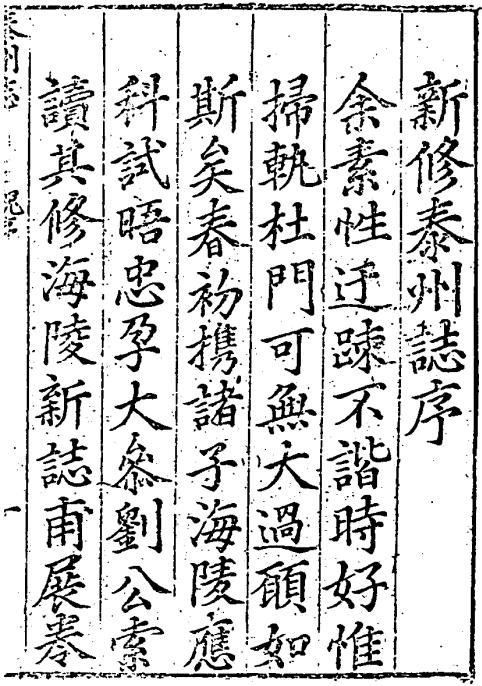 新修泰州誌序
余素性迂踈不諧時好惟
掃軌杜門可無大過頋如
斯矣春初携諸子海陵應
科試晤忠孕大叅劉公索
讀其修海陵新誌甫展卷